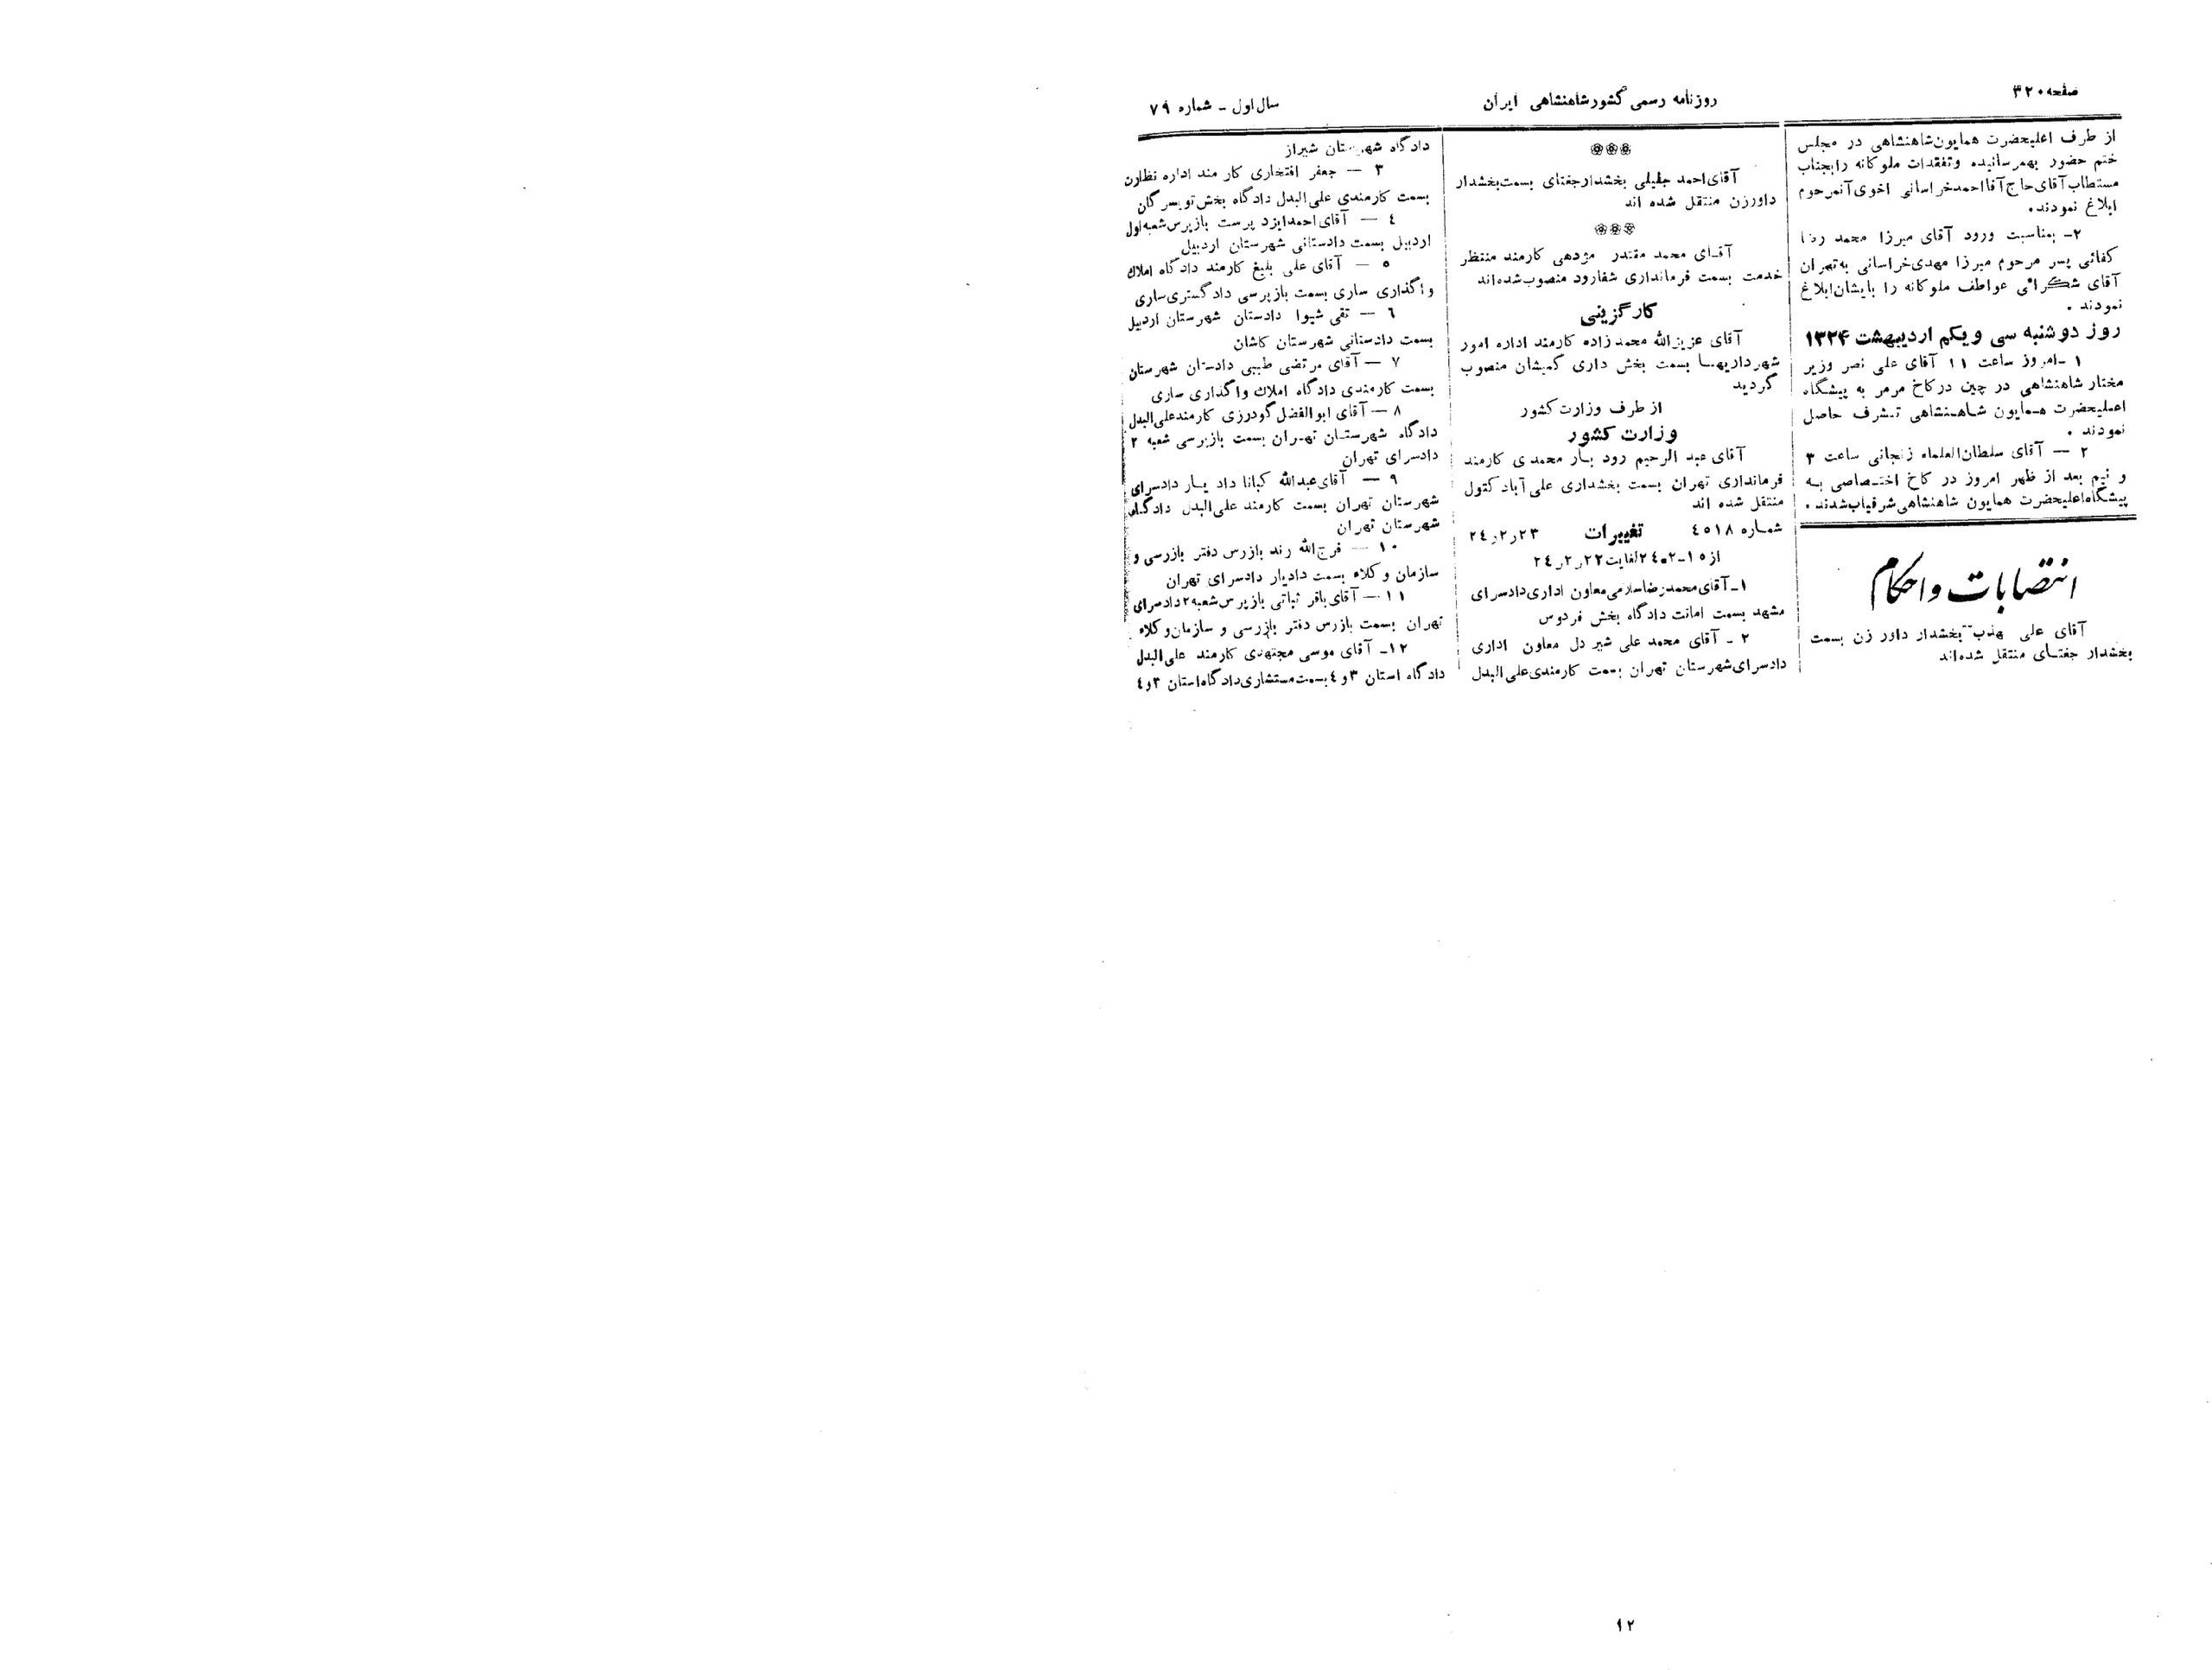 صفحه ۳۲۰
روزنامه رسمی کشور شاهنشاهی ایران
سال اول - شماره ۷۹
از طرف اعلیحضرت همایون شاهنشاهی در مجلس
ختم حضور بهمرسانیده وتفقدات ملوکانه رابجناب
مستطاب آقای حاج آقااحمدخراسانی اخوی آنمرحوم
ابلاغ نمودند.
۲- بمناسبت ورود آقای میرزا محمد رضا
کفائی پسر مرحوم میرزا مهدی خراسانی به تهران
آقای شکرائی عواطف ملوکانه را بایشان ابلاغ
نمودند .
روز دوشنبه سی ویکم اردیبهشت ۱۳۲۴
۱ -امروز ساعت ۱۱ آقای علی نصر وزیر
مختار شاهنشاهی در چین درکاخ مرمر به پیشگاه
اعلیحضرت همایون شاهنشاهی تشرف حاصل
نمودند .
۲ — آقای سلطان العلماء زنجانی ساعت ۳
و نیم بعد از ظهر امروز در کاخ اختصاصی به
پیشگاه اعلیحضرت همایون شاهنشاهی شرفیاب شدند .
انتصابات و احکام
آقای علی بخشدار داور زن بسمت
بخشدار جغتای منتقل شده اند
❀❀❀
آقای احمد جلیلی بخشدار جغتای بسمت بخشدار
داورزن منتقل شده اند
❀❀❀
آقای محمد مقتدر مژدهی کارمند منتظر
خدمت بسمت فرمانداری شفارود منصوب شده اند
کارگزینی
آقای عزیزالله محمدزاده کارمند اداره امور
شهرداریها بسمت بخش داری کمیشان منصوب
گردید
از طرف وزارت کشور
وزارت کشور
آقای عبد الرحیم رود بار محمدی کارمند
فرمانداری تهران بسمت بخشداری علی آباد کتول
منتقل شده اند
شماره ٤٥١٨ تغییرات ٢٣ر٢ر٢٤
از ١٥-٢-٢٤ لغایت ٢٢ر٢ر٢٤
۱- آقای محمدرضا سلامی معاون اداری دادسرای
مشهد بسمت امانت دادگاه بخش فردوس
۲ - آقای محمد علی شیر دل معاون اداری
دادسرای شهرستان تهران بسمت کارمندی علی البدل
دادگاه شهرستان شیراز
۳ — جعفر افتخاری کار مند اداره نظارت
بسمت کارمندی علی البدل دادگاه بخش تویسرگان
٤ — آقای احمدایزد پرست بازپرس شعبه اول
اردبیل بسمت دادستانی شهرستان اردبیل
٥ — آقای علی بلیغ کارمند دادگاه املاك
واگذاری ساری بسمت بازپرسی دادگستری ساری
٦ — تقی شیوا دادستان شهرستان اردبیل
بسمت دادستانی شهرستان کاشان
۷ — آقای مرتضی طبیبی دادستان شهرستان
بسمت کارمندی دادگاه املاك واگذاری ساری
۸ — آقای ابوالفضل گودرزی کارمند علی البدل
دادگاه شهرستان تهران بسمت بازپرسی شعبه ۲
دادسرای تهران
۹ — آقای عبدالله کیانا داد یار دادسرای
شهرستان تهران بسمت کارمند علی البدل دادگاه
شهرستان تهران
۱۰ — فرج الله رند بازرس دفتر بازرسی و
سازمان وکلاء بسمت دادیار دادسرای تهران
۱۱ — آقای باقر ثباتی بازپرس شعبه ۲ دادسرای
تهران بسمت بازرس دفتر بازرسی و سازمان وکلاء
۱۲- آقای موسی مجتهدی کارمند علی البدل
دادگاه استان ۳ و ٤ بسمت مستشاری دادگاه استان ۳ و ٤
۱۲